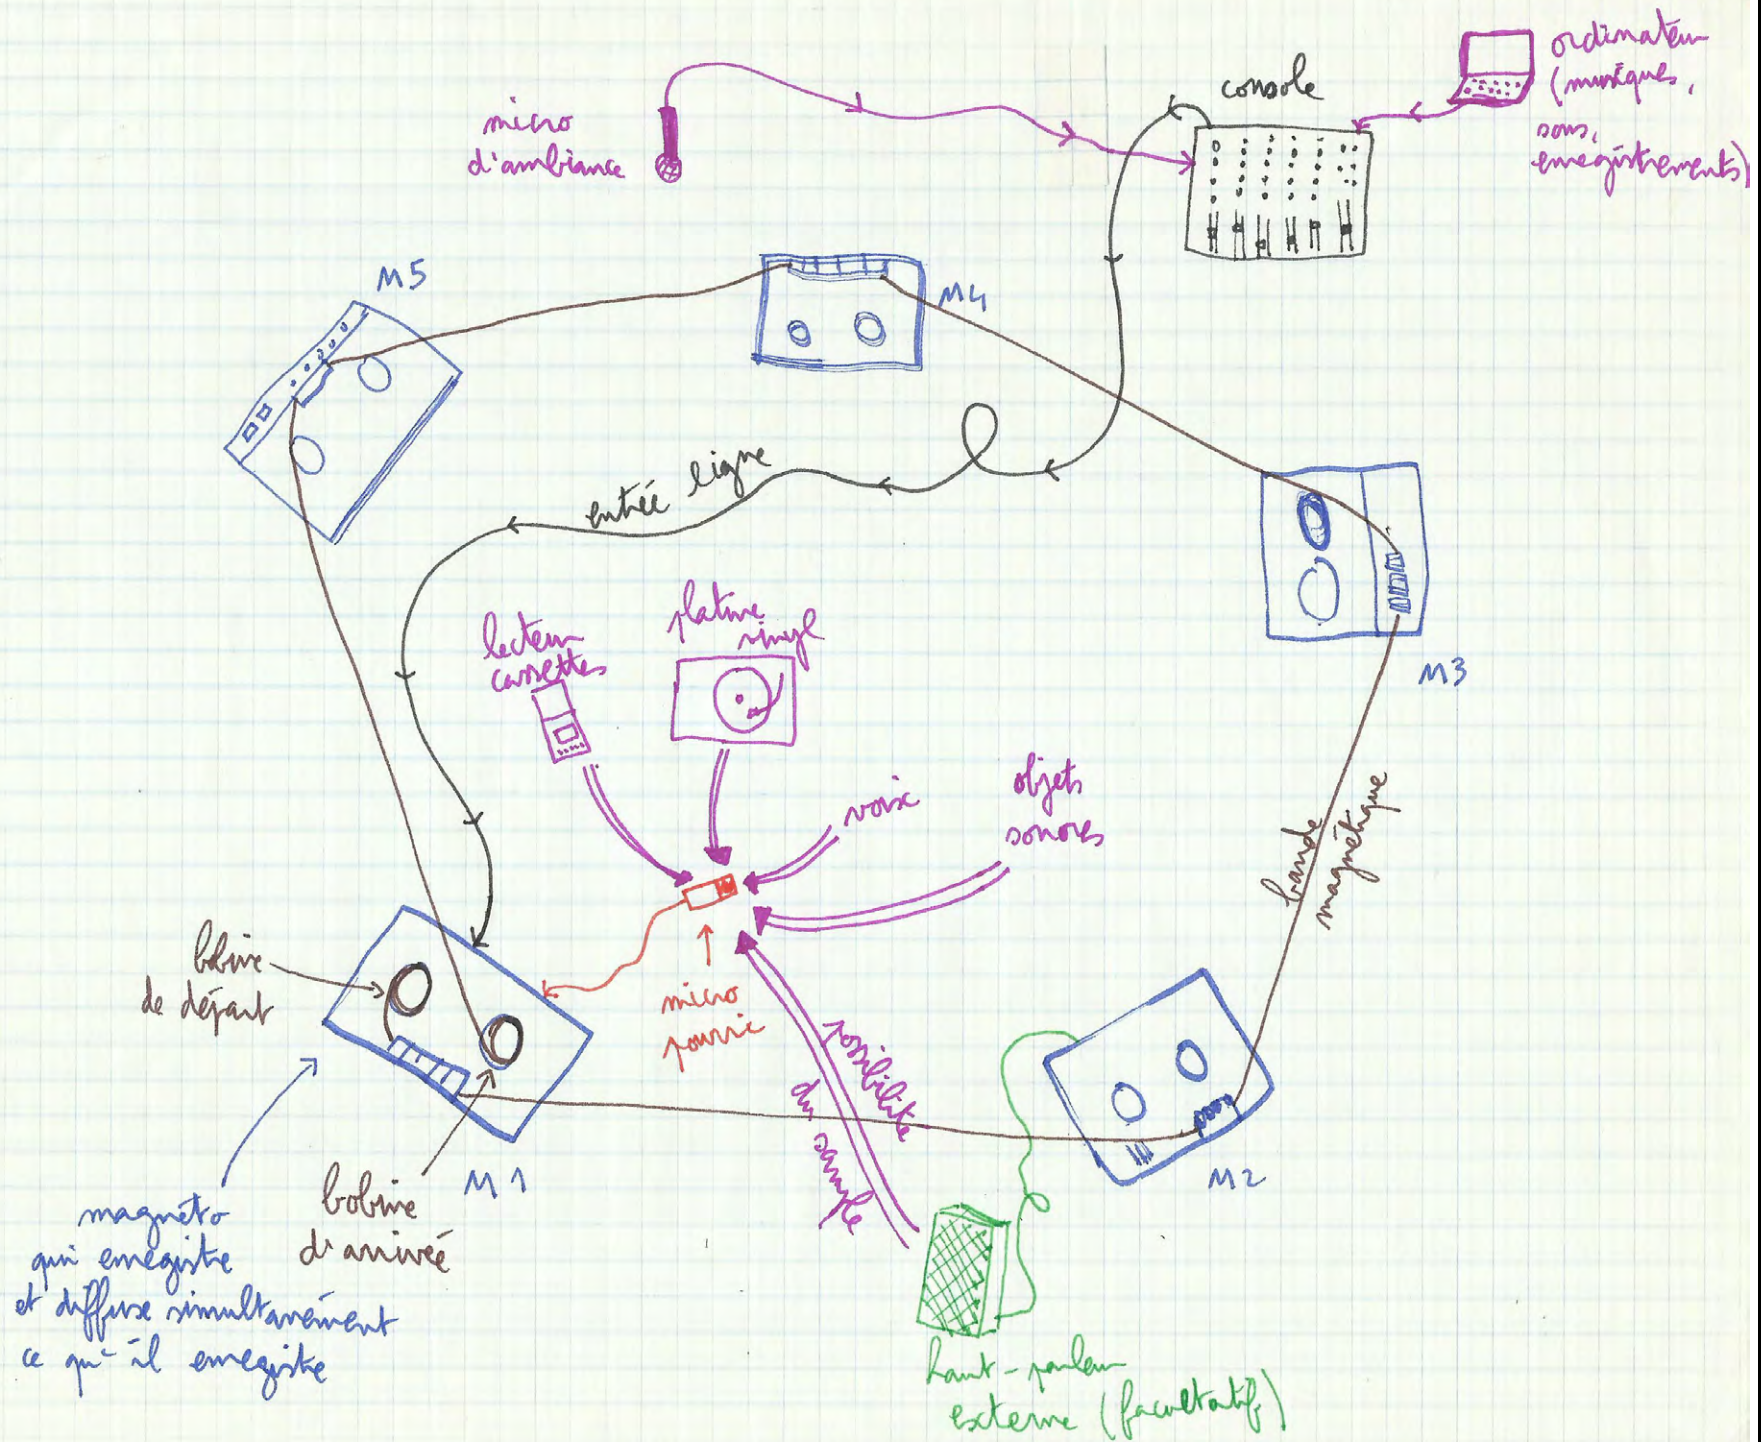 ordinateur
(musiques,
sons,
enregistrements)
console
micro
d'ambiance
M5
M4
entrée ligne
M3
lecteur
cassettes
platine
vinyl
voix
objets
sonores
bande
magnétique
bobine
de départ
micro
pourri
possibilité
du sample
M1
M2
bobine
d'arrivée
magnéto
qui enregistre
et diffuse simultanément
ce qu'il enregistre
haut-parleur
externe (facultatif)